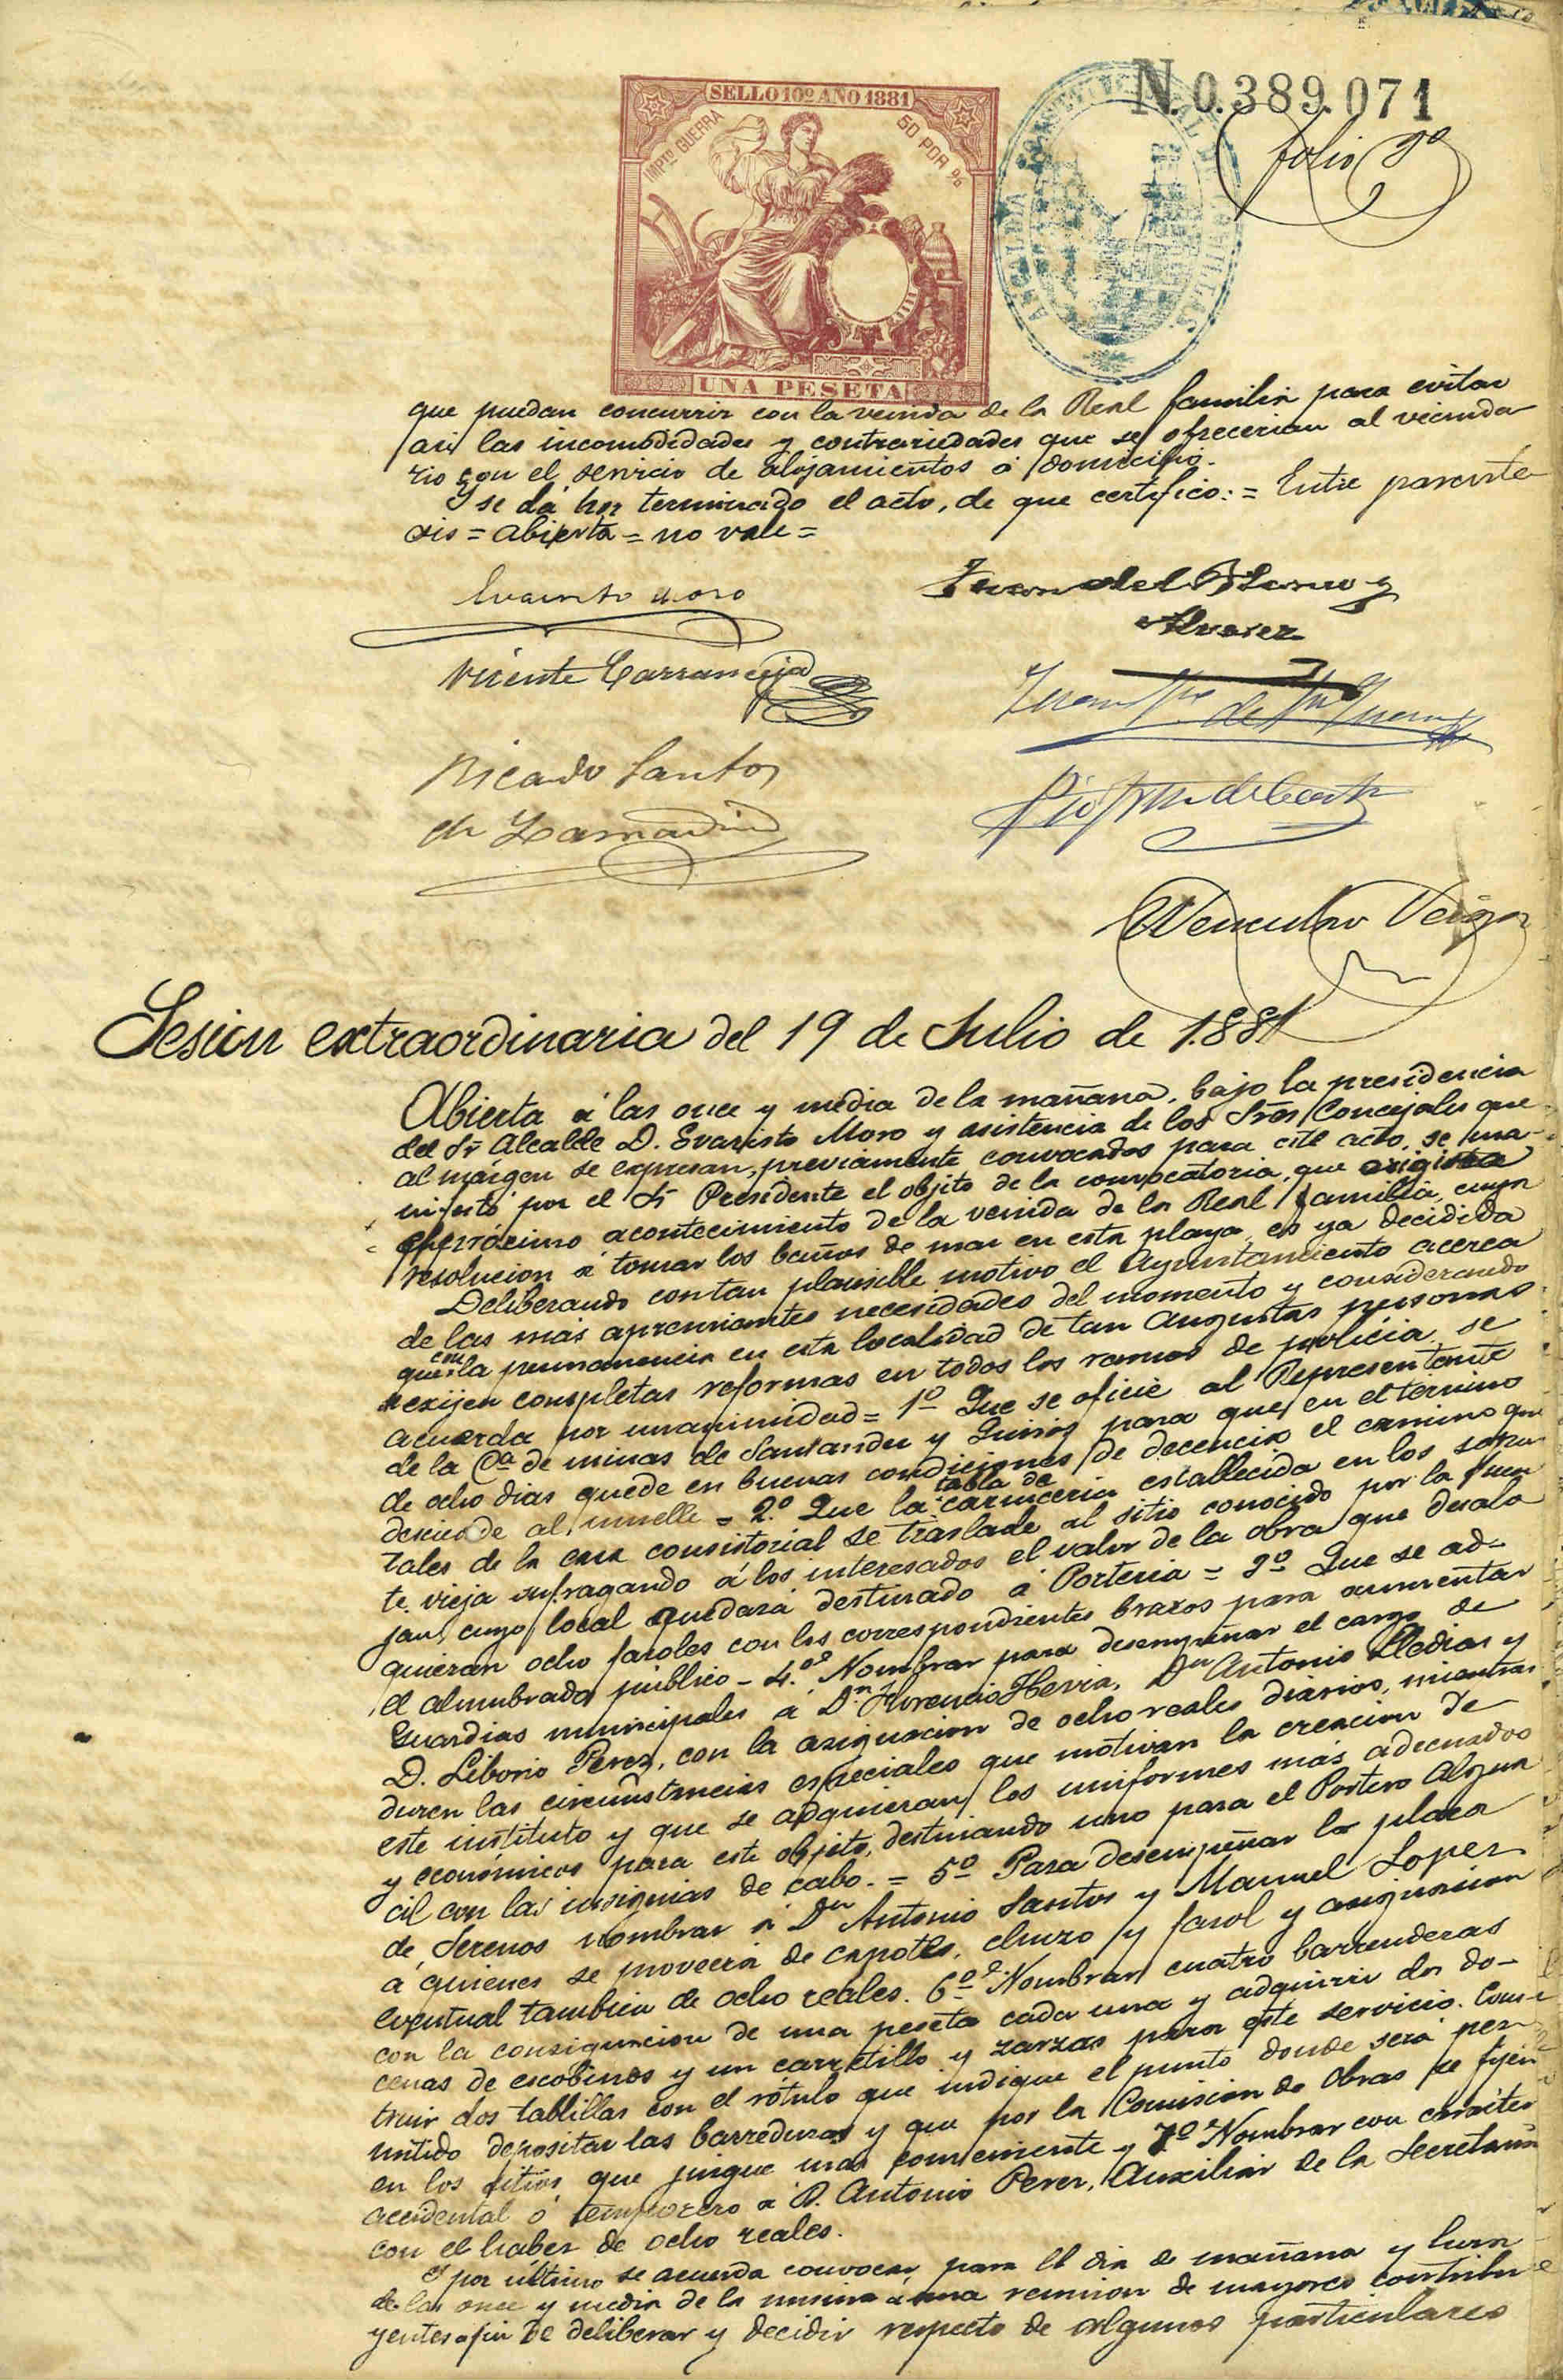 N. 0.389.071
folio 9º
SELLO 10º AÑO 1881
IMPTO GUERRA
50 POR %
UNA PESETA
ALCALDIA
que puedan concurrir con la venida de la Real familia para evitar
asi las incomodidades y contrariedades que se ofrecerian al vecinda
rio con el servicio de alojamientos á domicilio.
Y se dá por terminado el acto, de que certifico: = Entre parente
sis = abierta = no vale =
Evaristo Moro
Juan del Blanco y
Alvarez
Vicente Carranceja
Ricardo Santos
de Lamadrid
Wenceslao Veiga
Sesion extraordinaria del 19 de Julio de 1.881
Abierta á las once y media de la mañana, bajo la presidencia
del Sr Alcalde D. Evaristo Moro y asistencia de los Sres Concejales que
al márgen se expresan, previamente convocados para este acto, se ma-
nifestó por el Sr Presidente el objeto de la convocatoria, que origina
el próximo acontecimiento de la venida de la Real familia, cuya
resolucion á tomar los baños de mar en esta playa es ya decidida
Deliberando con tan plausible motivo el Ayuntamiento acerca
de las más apremiantes necesidades del momento y considerando
que con la permanencia en esta localidad de tan Augustas personas
exijen completas reformas en todos los ramos de policia, se
acuerda por unanimidad = 1º Que se oficie al Representante
de la Cª de minas de Santander y Quirós para que en el término
de ocho dias quede en buenas condiciones de decencia el camino que
desciende al muelle = 2.º Que la tabla de carniceria establecida en los sopor
tales de la casa consistorial se traslade al sitio conocido por la fuen
te vieja sufragando á los interesados el valor de la obra que desalo
jan, cuyo local quedará destinado á Porteria = 3º Que se ad-
quieran ocho faroles con los correspondientes brazos para aumentar
el alumbrado público - 4.º Nombrar para desempeñar el cargo de
Guardias municipales á Dn. Florencio Hevia, Dn Antonio Lledias y
D. Liborio Perez, con la asignacion de ocho reales diarios, mientras
duren las circunstancias especiales que motivan la creacion de
este instituto y que se adquieran los uniformes más adecuados
y económicos para este objeto, destinando uno para el Portero Algua
cil con las insignias de cabo. = 5º Para desempeñar la plaza
de Serenos nombrar á Dn Antonio Santos y Manuel Lopez
á quienes se proveerá de capotes, chuzo y farol y asignacion
eventual tambien de ocho reales. 6º Nombrar cuatro barrenderas
con la consignacion de una peseta cada una y adquirir dos do-
cenas de escobinos y un carretillo y zarzas para este servicio. Cons-
truir dos tablillas con el rótulo que indique el punto donde será per
mitido depositar las barreduras y que por la Comision de Obras se fijen
en los sitios que juzgue mas conveniente y 7º Nombrar con carácter
accidental ó temporero á D. Antonio Perez, Auxiliar de la Secretaria
con el haber de ocho reales.
Y por último se acuerda convocar para el dia de mañana y hora
de las once y media de la misma á una reunion de mayores contribu
yentes a fin de deliberar y decidir respecto de algunos particulares